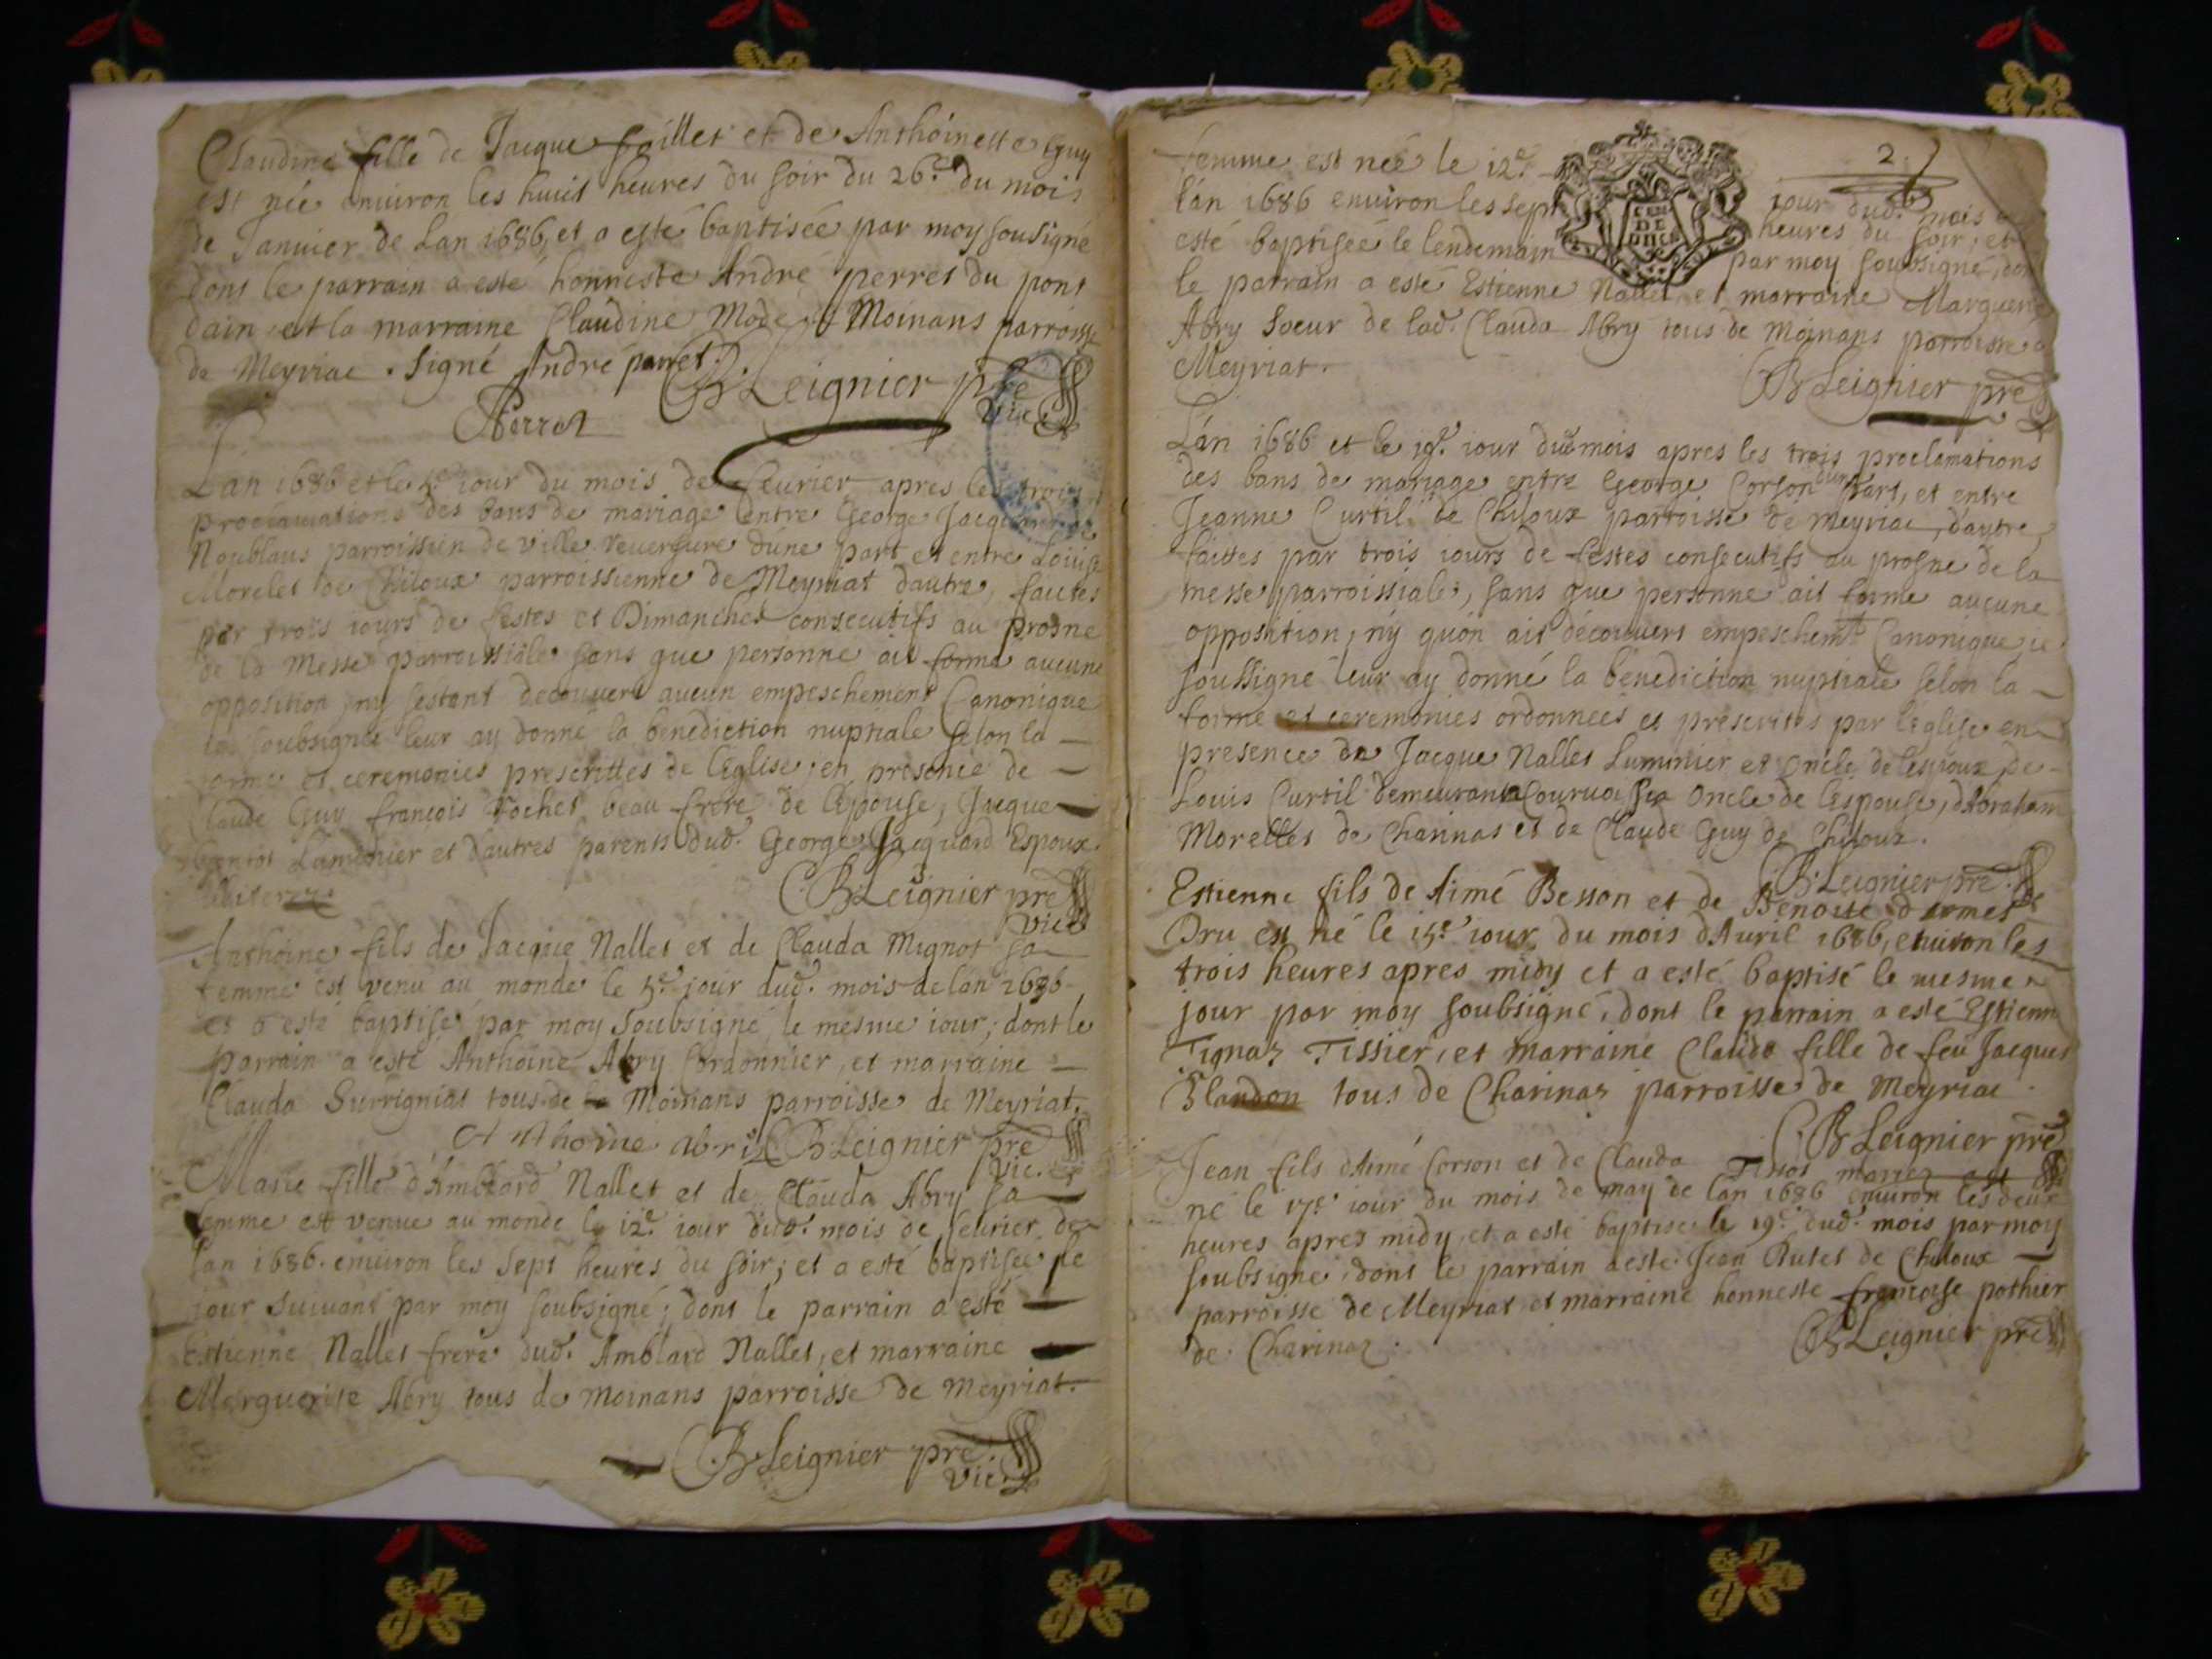 Claudine fille de Jacque faillet et de Anthoinette Guy
est née enuiron les huit heures du soir du 26.e du mois
de Januier de Lan 1686, et a esté baptisée par moy sousigné
dont le parrain a esté honneste André perret du pont
dain et la marraine Claudine Mode Moinans parroisse
de Meyriac. Signé André perret.
BLeignier pre
vic.
APerret
Lan 1686 et le iour du mois de feurier apres les trois
proclamations des bans de mariage entre George Jacquard de
Noublans parroissien de Ville reuersure dune part et entre Louise
Morelet de Chiloux parroissienne de Meyriat dautre, faites
par trois iours de festes et Dimanches consecutifs au prosne
de la Messe parroissiale sans que personne ait formé aucune
opposition, ny sestant decouuert aucun empeschement Canonique
soubsigné leur ay donné la benediction nuptiale selon la
forme et ceremonies prescrittes de lEglise, en presence de
Claude Guy françois rochet beau frere de lépouse, Jacque
Luminier et dautres parents dud. George Jacquard Espoux.
BLeignier pre
vic.
Anthoine fils de Jacque Nallet et de Clauda Mignot sa
femme est venu au monde le 5.e jour dud. mois de lan 1686
et a esté baptisé par moy soubsigné le mesme iour; dont le
parrain a esté Anthoine Abry Cordonnier, et marraine
Clauda Surrignias tous de Moinans parroisse de Meyriat.
Anthoine abri BLeignier pre
vic.
Marie fille d'Amblard Nallet et de Clauda Abry sa
femme est venue au monde le 12.e iour dud. mois de feurier de
lan 1686. enuiron les sept heures du soir; et a esté baptisée le
iour suiuant par moy soubsigné; dont le parrain a esté
Estienne Nallet frere dud. Amblard Nallet, et marraine
Marguerite Abry tous de Moinans parroisse de Meyriat.
BLeignier pre
vic.
2
femme est née le 12.e iour dud. mois
lan 1686 enuiron les sept heures du soir, et
CEN
DE
esté baptiseé le lendemain par moy soubsigné, dont
le parrain a esté Estienne Nallet, et marraine Marguerite
Abry soeur de lad. Clauda Abry tous de Moinans parroisse
Meyriat.
BLeignier pre
Lán 1686 et le 19.e iour dud mois apres les trois proclamations
des bans de mariage entre George Corson dune part, et entre
Jeanne Curtil de Chiloux parroisse de Meyriac, dautre,
faittes par trois iours de festes consecutifs au prosne de la
messe parroissiale, sans que personne ait formé aucune
opposition, ny quon ait découuert empeschemt Canonique, ie
soussigné leur ay donné la bénediction nuptiale selon la
forme et ceremonies ordonneés et prescrites par lEglise en
presence de Jacque Nallet Luminier et oncle de lespoux de
Louis Curtil demeurant a Oncle de lEspouse, dAbraham
Morellet de Charinas et de Claude Guy de Chiloux.
BLeignier pre.
Estienne fils de Aimé Besson et de Benoite
Dru est né le 15.e iour du mois dAuril 1686, enuiron les
trois heures apres midy et a esté baptisé le mesme
jour par moy soubsigné, dont le parrain a esté Estienne
Tignaz Tissier, et marraine Clauda fille de feu Jacques
Blandon tous de Charinaz parroisse de Meyriac
BLeignier pre
Jean fils dAimé Corson et de Clauda Tissot mariez est
né le 17.e iour du mois de may de lan 1686 enuiron les deux
heures apres midy, et a esté baptisé le 19.e dud. mois par moy
soubsigné, dont le parrain a esté Jean Rutet de Chiloux
parroisse de Meyriat et marraine honneste françoise pothier
de Charinaz.
BLeignier pre